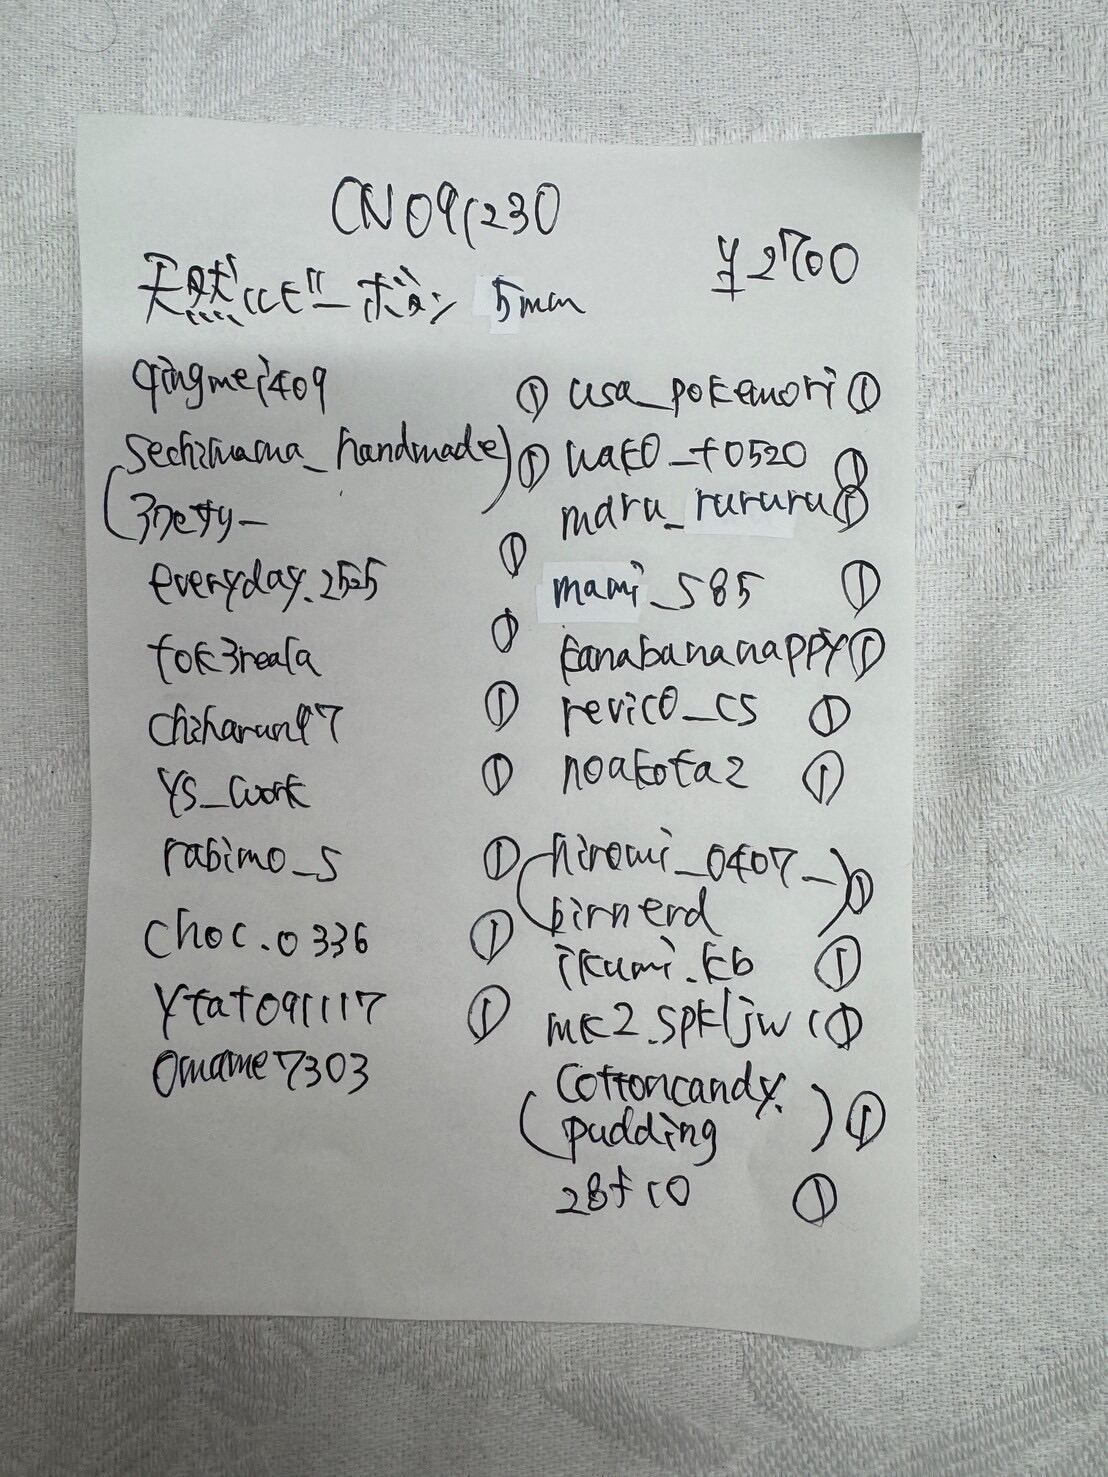 CN091230
¥2700
天然ルビーボタン 5mm
qingmei409 ①
sechimama_handmade ①
3nety_
everyday.2525 ①
tok3reala ①
chiharun97 ①
ys_work ①
rabimo_s ①
choc.0336 ①
ytat091117 ①
omame7303
usa_pokemori ①
nako_t0520 ①
maru_rururu8 ①
mami_585 ①
kanabananappy ①
revico_cs ①
noakota2 ①
hiromi_0407_ ①
birnerd
ikumi.kb ①
mk2.spkljw ①
cottoncandy.
pudding ①
28tico ①